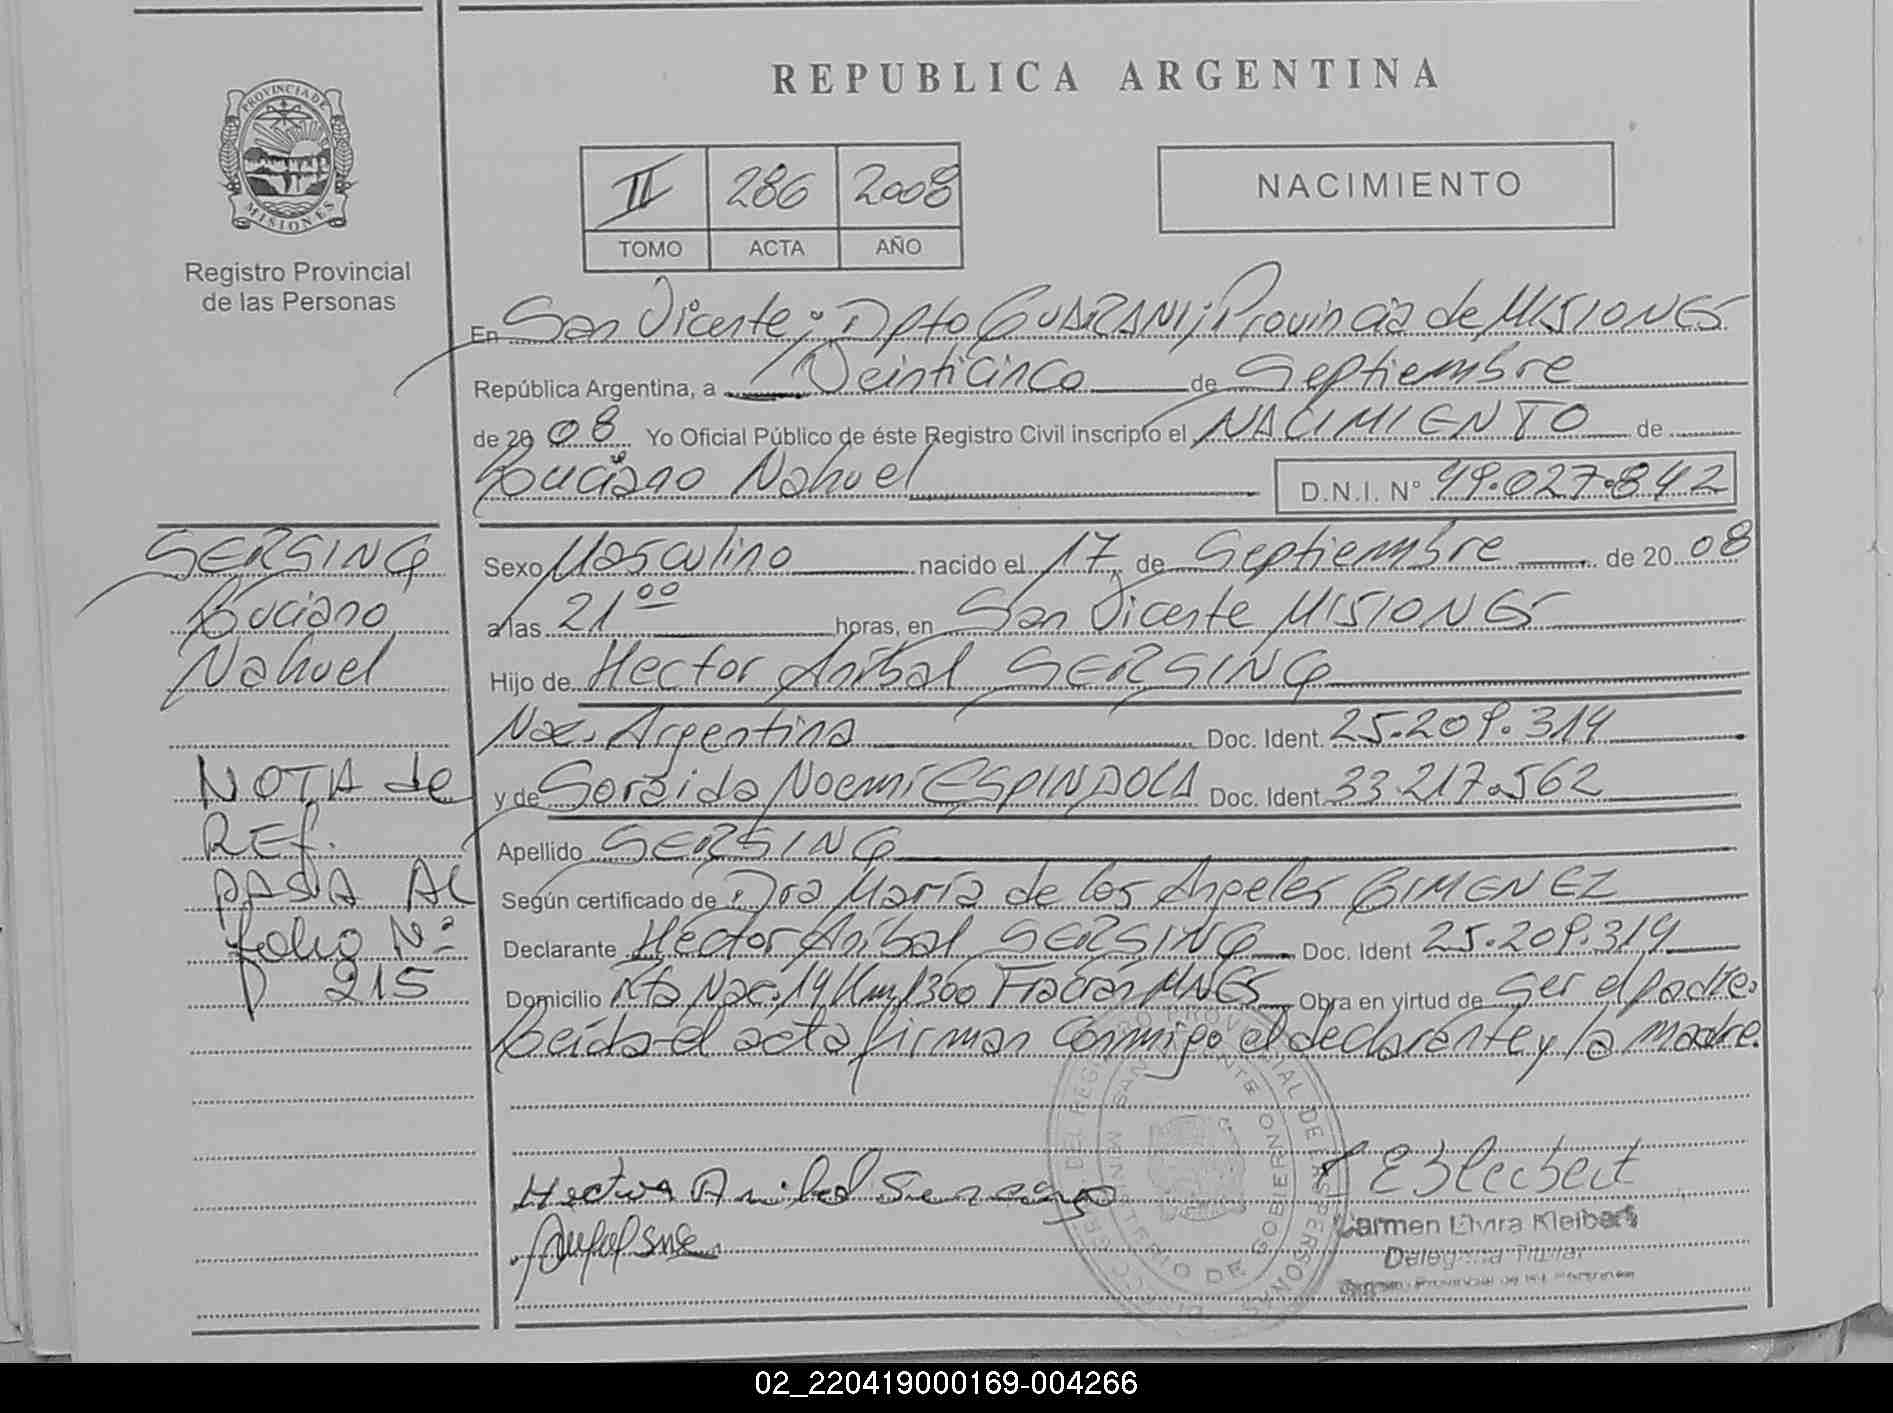 REPUBLICA ARGENTINA
PROVINCIA DE
MISIONES
Registro Provincial
de las Personas
II 286 2008
TOMO ACTA AÑO
NACIMIENTO
En San Vicente; Dpto GUARANI; Provincia de MISIONES
República Argentina, a Veinticinco de Septiembre
de 20 08 Yo Oficial Público de éste Registro Civil inscripto el NACIMIENTO de
Luciano Nahuel D.N.I. N° 49.027.842
SERSING
Luciano
Nahuel
Sexo Masculino nacido el 17 de Septiembre de 20 08
a las 21 00 horas, en San Vicente MISIONES
Hijo de Hector Anibal SERSING
Nac. Argentina Doc. Ident. 25.209.314
y de Soraida Noemi ESPINDOLA Doc. Ident. 33.217.562
Apellido SERSING
Según certificado de Dra María de los Angeles GIMENEZ
Declarante Hector Anibal SERSING Doc. Ident 25.209.314
Domicilio Rta Nac. 14 Km 1300 Fracrán MNES Obra en virtud de ser el padre.
Leída el acta firman conmigo el declarante y la madre.
NOTA de
REf.
PASA AL
folio N°
215
Hector Anibal
E Kleibert
Carmen Elvira Kleibert
Delegada Titular
Registro Provincial de las Personas
MINISTERIO DE GOBIERNO
SAN VICENTE
02_220419000169-004266